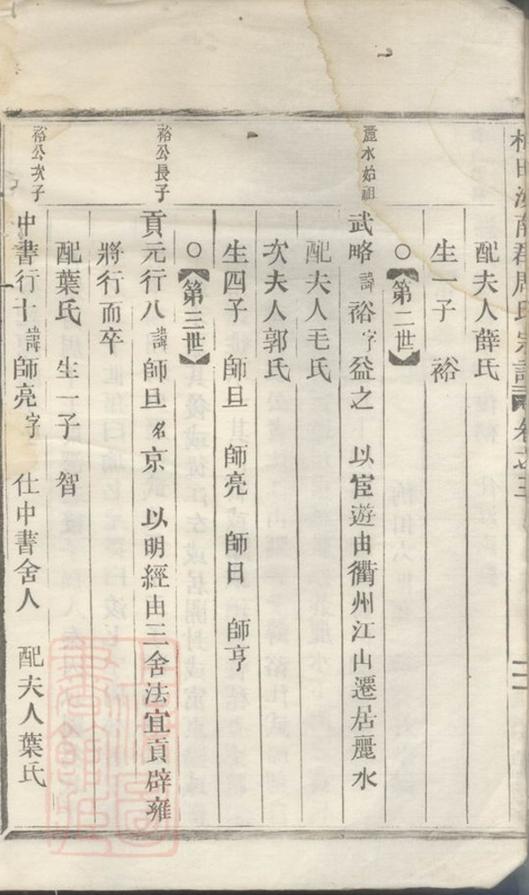 周氏宗譜 卷之三
配夫人薛氏
生一子 裕
○【第二世】
麗水始祖
武略諱裕字益之 以宦遊由衢州江山遷居麗水
配夫人毛氏
次夫人郭氏
生四子 師旦 師亮 師日 師亨
○【第三世】
裕公長子
貢元行八諱師旦名京 以明經由三舍法宜貢辟雍
將行而卒
配葉氏 生一子 智
裕公次子
中書行十諱師亮字 仕中書舍人 配夫人葉氏